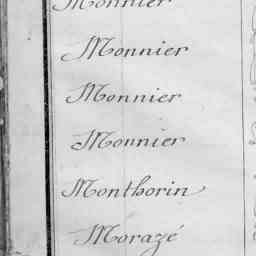 Monnier
Monnier
Monnier
Monnier
Monthorin
Morazé